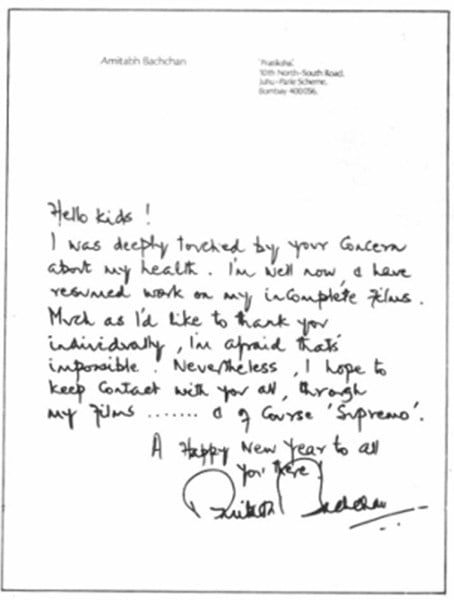 Amitabh Bachchan
'Pratiksha',
10th North-South Road,
Juhu-Parle Scheme,
Bombay 400056.
Hello kids !
I was deeply touched by your concern
about my health. I'm well now, & have
resumed work on my incomplete films.
Much as I'd like to thank you
individually, I'm afraid that's
impossible. Nevertheless, I hope to
keep contact with you all, through
my films ....... & of course 'Supremo'.
A Happy New Year to all
you there !
Amitabh Bachchan